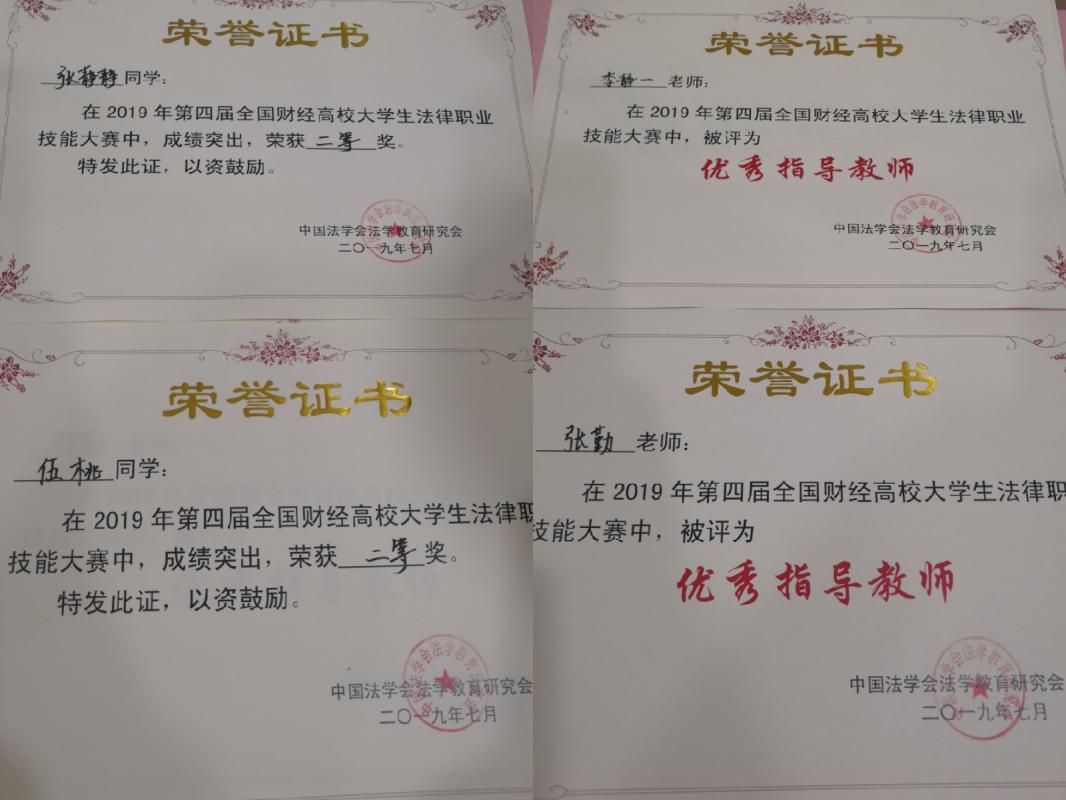 荣誉证书
张静静同学:
在2019年第四届全国财经高校大学生法律职业
技能大赛中，成绩突出，荣获二等奖。
特发此证，以资鼓励。
中国法学会法学教育研究会
二〇一九年七月
荣誉证书
李静一老师:
在2019年第四届全国财经高校大学生法律职业
技能大赛中，被评为
优秀指导教师
中国法学会法学教育研究会
二〇一九年七月
荣誉证书
伍桃同学:
在2019年第四届全国财经高校大学生法律职
技能大赛中，成绩突出，荣获二等奖。
特发此证，以资鼓励。
中国法学会法学教育研究会
二〇一九年七月
荣誉证书
张勤老师:
在2019年第四届全国财经高校大学生法律职
技能大赛中，被评为
优秀指导教师
中国法学会法学教育研究会
二〇一九年七月